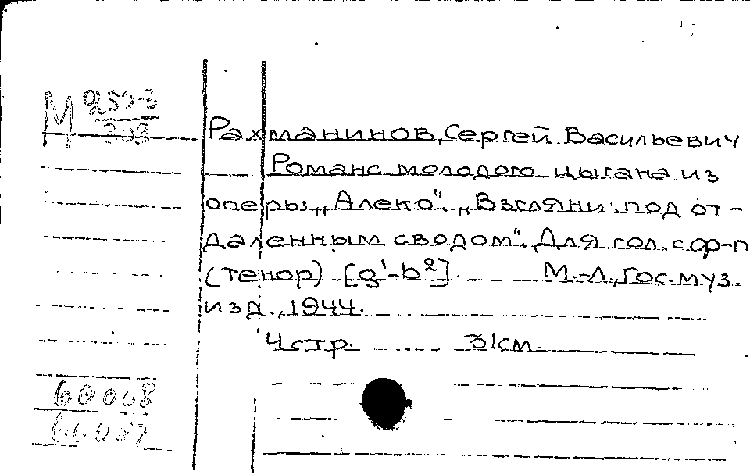 М
Рахманинов, Сергей Васильевич
Романс молодого цыгана из
оперы „Алеко". „Взгляни: под от-
даленным сводом". Для гол. с ф-п
(тенор) [g¹-b²]. М.-Л., Гос. муз.
изд., 1944.
4 стр. 31 см.